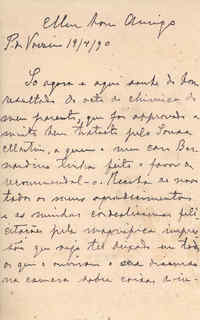 Exmo Bom Amigo
P. de Varzim 19/7/90
Só agora e aqui soube do bom
resultado do acto de chimica do
meu parente, que foi approvado e
muito bem tratado pelo Souza
Martins, a quem o meu caro Ber-
nardino tinha feito o favor de
recommendal-o. Receba de novo
todos os meus agradecimentos
e as minhas cordealissimas feli-
citações pela magnifica impres-
são que vejo ter deixado em todos
os que o ouviram o seu discurso
na camara sobre coisas d'in-